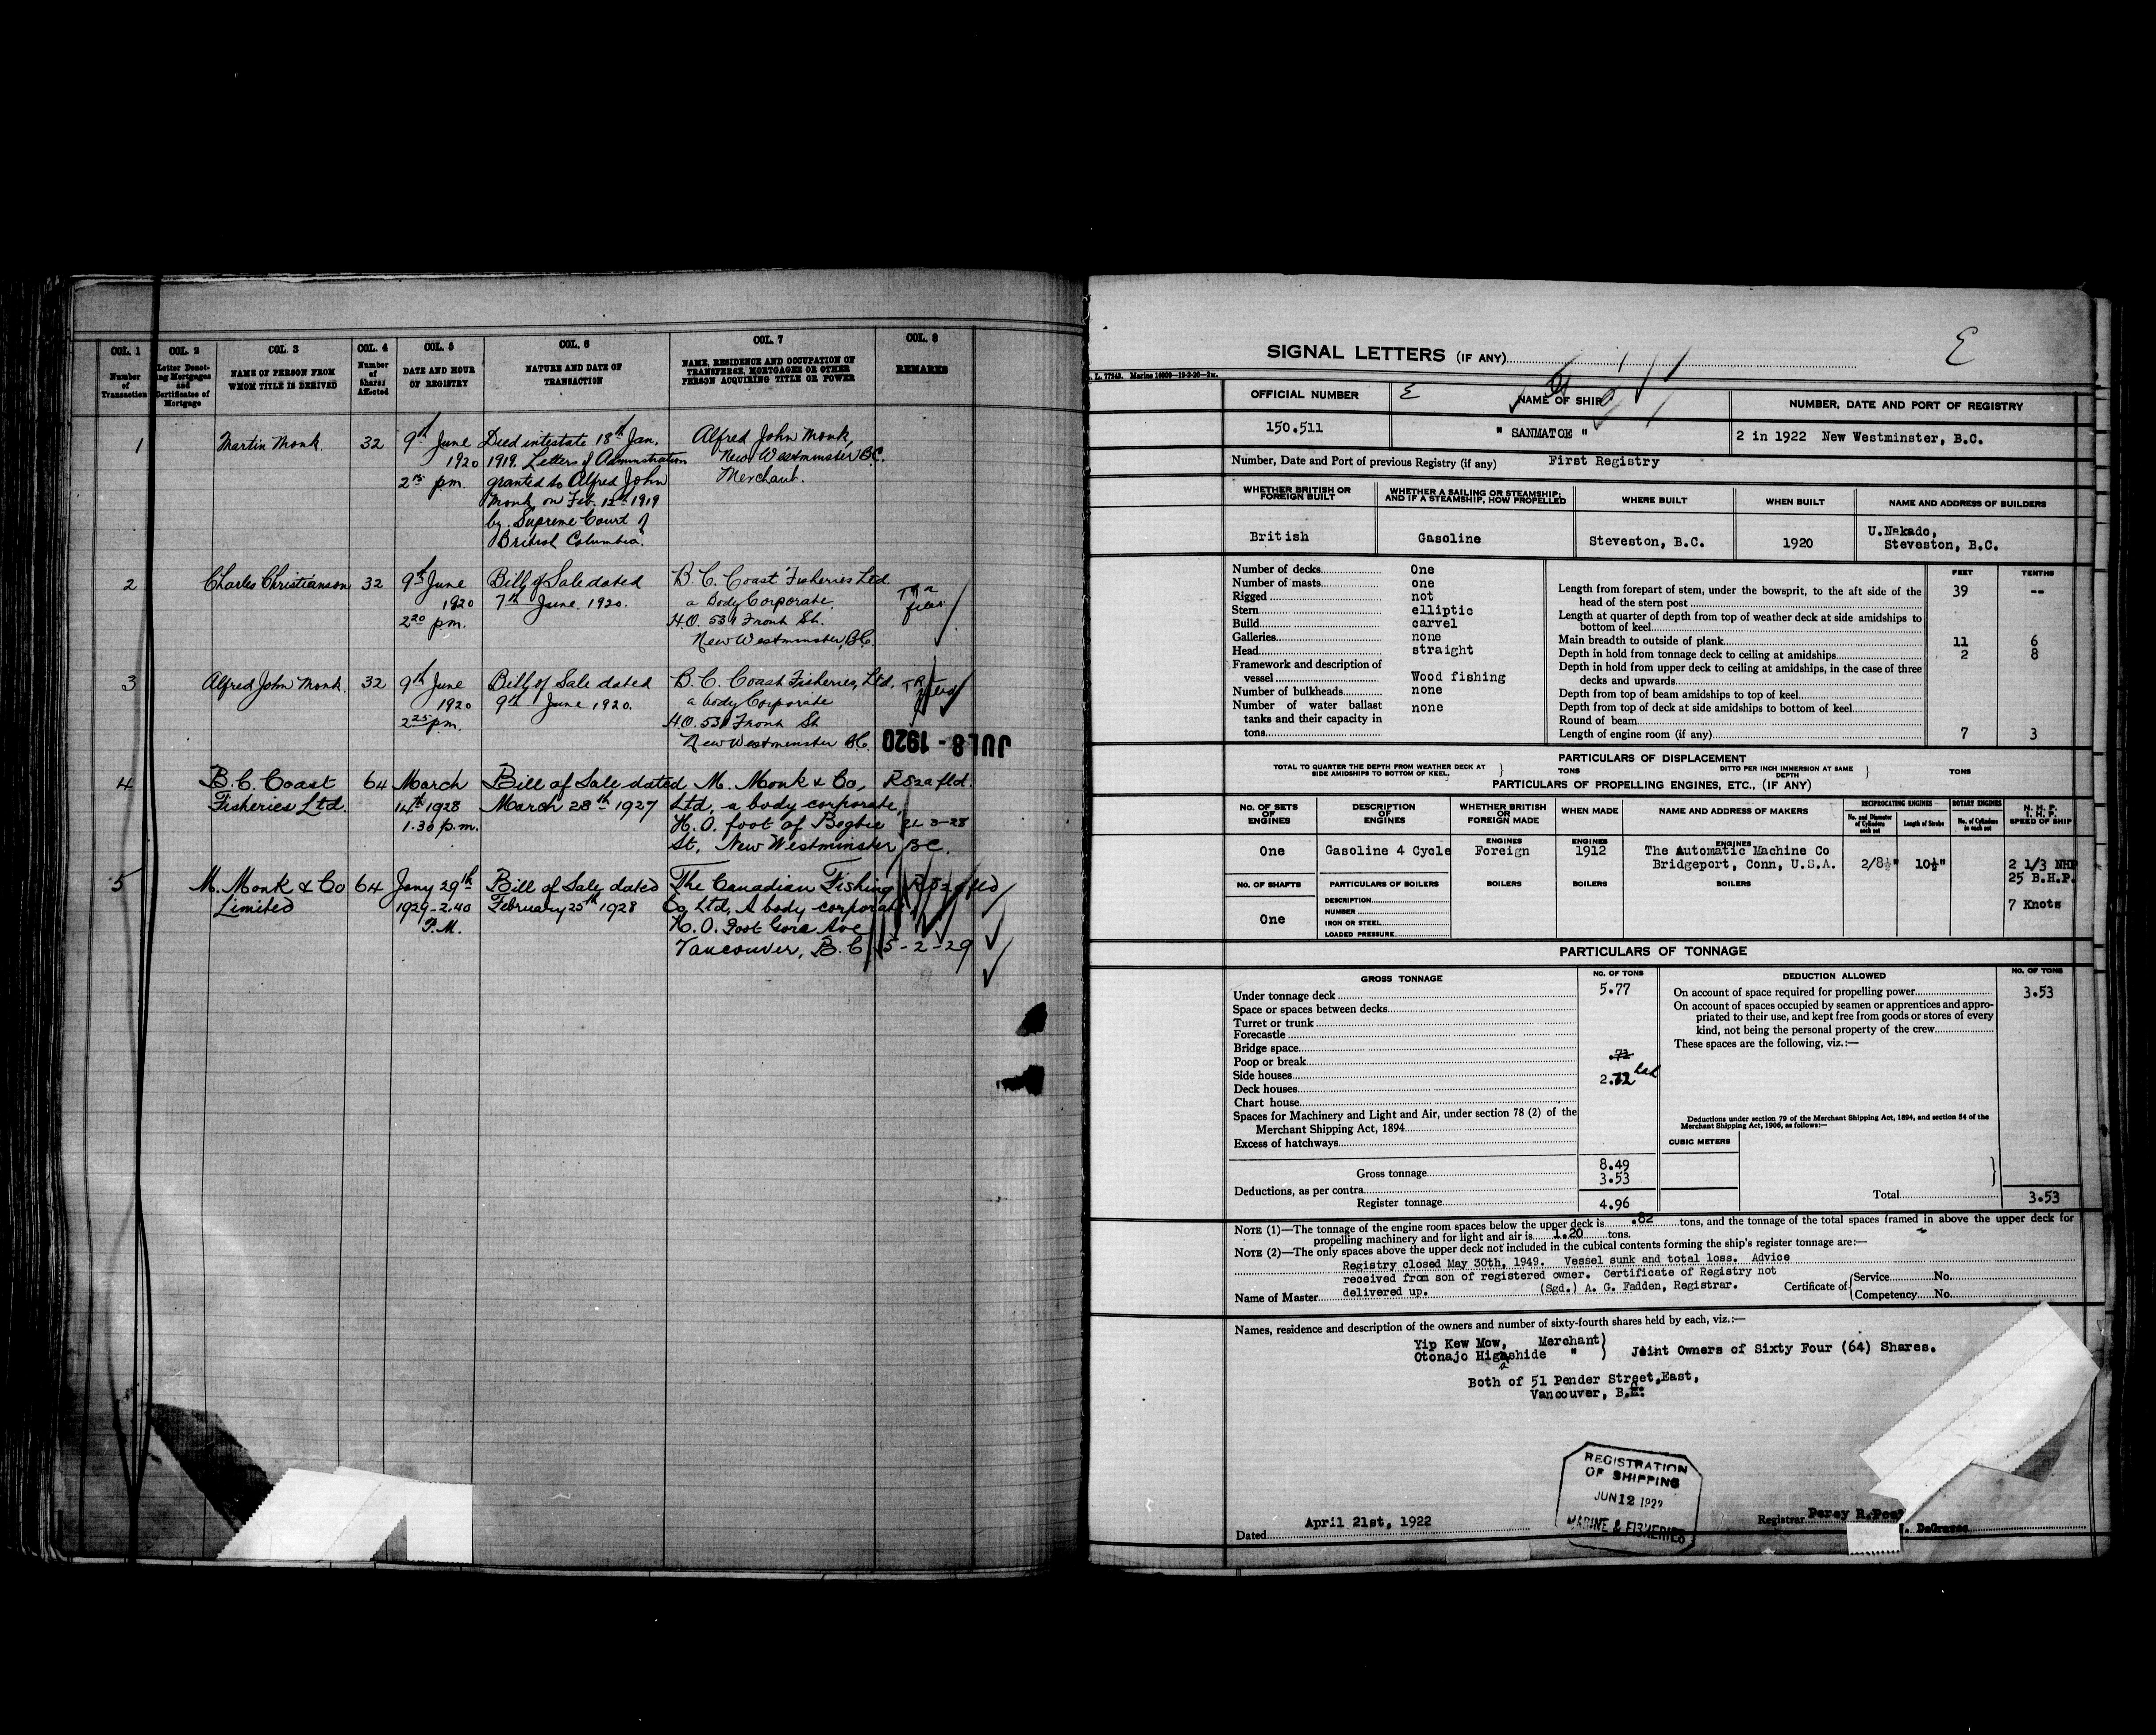 COL. 1
Number of Transaction
COL. 2
Letter Denoting Mortgages and Certificates of Mortgage
COL. 3
NAME OF PERSON FROM WHOM TITLE IS DERIVED
COL. 4
Number of Shares Affected
COL. 5
DATE AND HOUR OF REGISTRY
COL. 6
NATURE AND DATE OF TRANSACTION
COL. 7
NAME, RESIDENCE AND OCCUPATION OF TRANSFEREE, MORTGAGEE OR OTHER PERSON ACQUIRING TITLE OR POWER
COL. 8
REMARKS
1 Martin Monk. 32 9th June Died intestate 18th Jan. Alfred John Monk,
1920 1919. Letters of Administration New Westminster B.C.
pm. granted to Alfred John Merchant.
Monk on Feb. 12th 1919
by Supreme Court of
British Columbia.
2 Charles Christianson 32 9th June Bill of Sale dated B.C. Coast Fisheries Ltd.
1920 7th June 1920. a Body Corporate.
2 20 pm. H.O. 531 Front St.
New Westminster, B.C.
3 Alfred John Monk. 32 9th June Bill of Sale dated B.C. Coast Fisheries, Ltd.
1920 9th June 1920. a body Corporate
2 25 pm. H.O. 531 Front St
New Westminster B.C.
JUL 8 - 1920
4 B.C. Coast 64 March Bill of Sale dated M. Monk & Co, R52a fld.
Fisheries Ltd. 14th 1928 March 28th 1927 Ltd, a body corporate,
1.30 p.m. H.O. foot of Begbie 21-3-28
St, New Westminster B.C.
5 M. Monk & Co 64 Jany 29th Bill of Sale dated The Canadian Fishing R52a fld
Limited 1929-2.40 February 25th 1928 Co, Ltd, A body corporate
P.M. H.O. Foot Gore Ave
Vancouver, B.C. 5-2-29
SIGNAL LETTERS (IF ANY)
E
L. 77243. Marine 10000—19-3-20—2M.
OFFICIAL NUMBER
150.511
E
NAME OF SHIP
" SANMATOE "
NUMBER, DATE AND PORT OF REGISTRY
2 in 1922 New Westminster, B.C.
Number, Date and Port of previous Registry (if any) First Registry
WHETHER BRITISH OR FOREIGN BUILT
British
WHETHER A SAILING OR STEAMSHIP; AND IF A STEAMSHIP, HOW PROPELLED
Gasoline
WHERE BUILT
Steveston, B.C.
WHEN BUILT
1920
NAME AND ADDRESS OF BUILDERS
U.Nakado,
Steveston, B.C.
Number of decks One
Number of masts one
Rigged not
Stern elliptic
Build carvel
Galleries none
Head straight
Framework and description of
vessel Wood fishing
Number of bulkheads none
Number of water ballast none
tanks and their capacity in
tons
FEET TENTHS
Length from forepart of stem, under the bowsprit, to the aft side of the
head of the stern post 39 --
Length at quarter of depth from top of weather deck at side amidships to
bottom of keel
Main breadth to outside of plank 11 6
Depth in hold from tonnage deck to ceiling at amidships 2 8
Depth in hold from upper deck to ceiling at amidships, in the case of three
decks and upwards
Depth from top of beam amidships to top of keel
Depth from top of deck at side amidships to bottom of keel
Round of beam
Length of engine room (if any) 7 3
PARTICULARS OF DISPLACEMENT
TOTAL TO QUARTER THE DEPTH FROM WEATHER DECK AT SIDE AMIDSHIPS TO BOTTOM OF KEEL. } TONS DITTO PER INCH IMMERSION AT SAME DEPTH } TONS
PARTICULARS OF PROPELLING ENGINES, ETC., (IF ANY)
NO. OF SETS OF ENGINES
DESCRIPTION OF ENGINES
WHETHER BRITISH OR FOREIGN MADE
WHEN MADE
NAME AND ADDRESS OF MAKERS
RECIPROCATING ENGINES
No. and Diameter of Cylinders each set
Length of Stroke
ROTARY ENGINES
No. of Cylinders in each set
N. H. P.
I. H. P.
SPEED OF SHIP
ENGINES ENGINES ENGINES
One Gasoline 4 Cycle Foreign 1912 The Automatic Machine Co
Bridgeport, Conn, U.S.A. 2/8½" 10½" 2 1/3 NHP
25 B.H.P.
7 Knots
NO. OF SHAFTS
One
PARTICULARS OF BOILERS
BOILERS BOILERS BOILERS
DESCRIPTION
NUMBER
IRON OR STEEL
LOADED PRESSURE
PARTICULARS OF TONNAGE
GROSS TONNAGE NO. OF TONS
Under tonnage deck 5.77
Space or spaces between decks
Turret or trunk
Forecastle
Bridge space
Poop or break .72
Side houses
Deck houses 2.72
Chart house
Spaces for Machinery and Light and Air, under section 78 (2) of the
Merchant Shipping Act, 1894
Excess of hatchways
Gross tonnage 8.49
Deductions, as per contra 3.53
Register tonnage 4.96
DEDUCTION ALLOWED NO. OF TONS
On account of space required for propelling power 3.53
On account of spaces occupied by seamen or apprentices and appro-
priated to their use, and kept free from goods or stores of every
kind, not being the personal property of the crew
These spaces are the following, viz.:—
Deductions under section 79 of the Merchant Shipping Act, 1894, and section 54 of the
Merchant Shipping Act, 1906, as follows:—
CUBIC METERS
Total 3.53
NOTE (1)—The tonnage of the engine room spaces below the upper deck is .82 tons, and the tonnage of the total spaces framed in above the upper deck for
propelling machinery and for light and air is 1.20 tons.
NOTE (2)—The only spaces above the upper deck not included in the cubical contents forming the ship's register tonnage are:—
Registry closed May 30th, 1949. Vessel sunk and total loss. Advice
received from son of registered owner. Certificate of Registry not
delivered up. (Sgd.) A. G. Fadden, Registrar.
Name of Master
Certificate of { Service No.
Competency No.
Names, residence and description of the owners and number of sixty-fourth shares held by each, viz.:—
Yip Kew Mow, Merchant)
Otonajo Higashide " ) Joint Owners of Sixty Four (64) Shares.
Both of 51 Pender Street,East,
Vancouver, B.C.
REGISTRATION
OF SHIPPING
JUN 12 1922
MARINE & FISHERIES
Dated April 21st, 1922
Registrar Percy R.
DeGraves